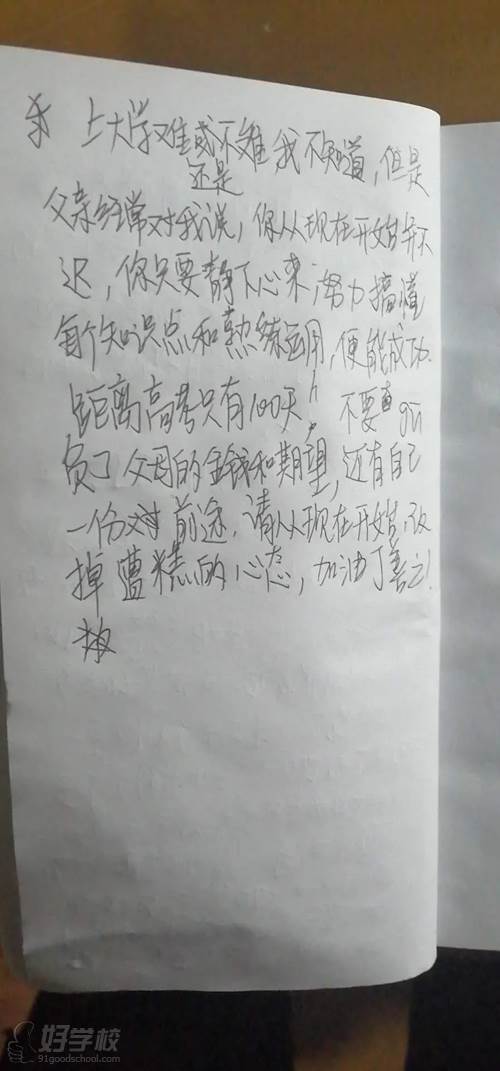 上大学难或不难我不知道，但是
还是
父亲经常对我说，你从现在开始并不
迟，你只要静下心来，努力搞懂
每个知识点和熟练运用，便能成功.
距离高考只有100天！不要
负了父母的金钱和期望，还有自己
一份对前途.请从现在开始，改
掉糟糕的心态，加油丁善之！
好学校
91goodschool.com